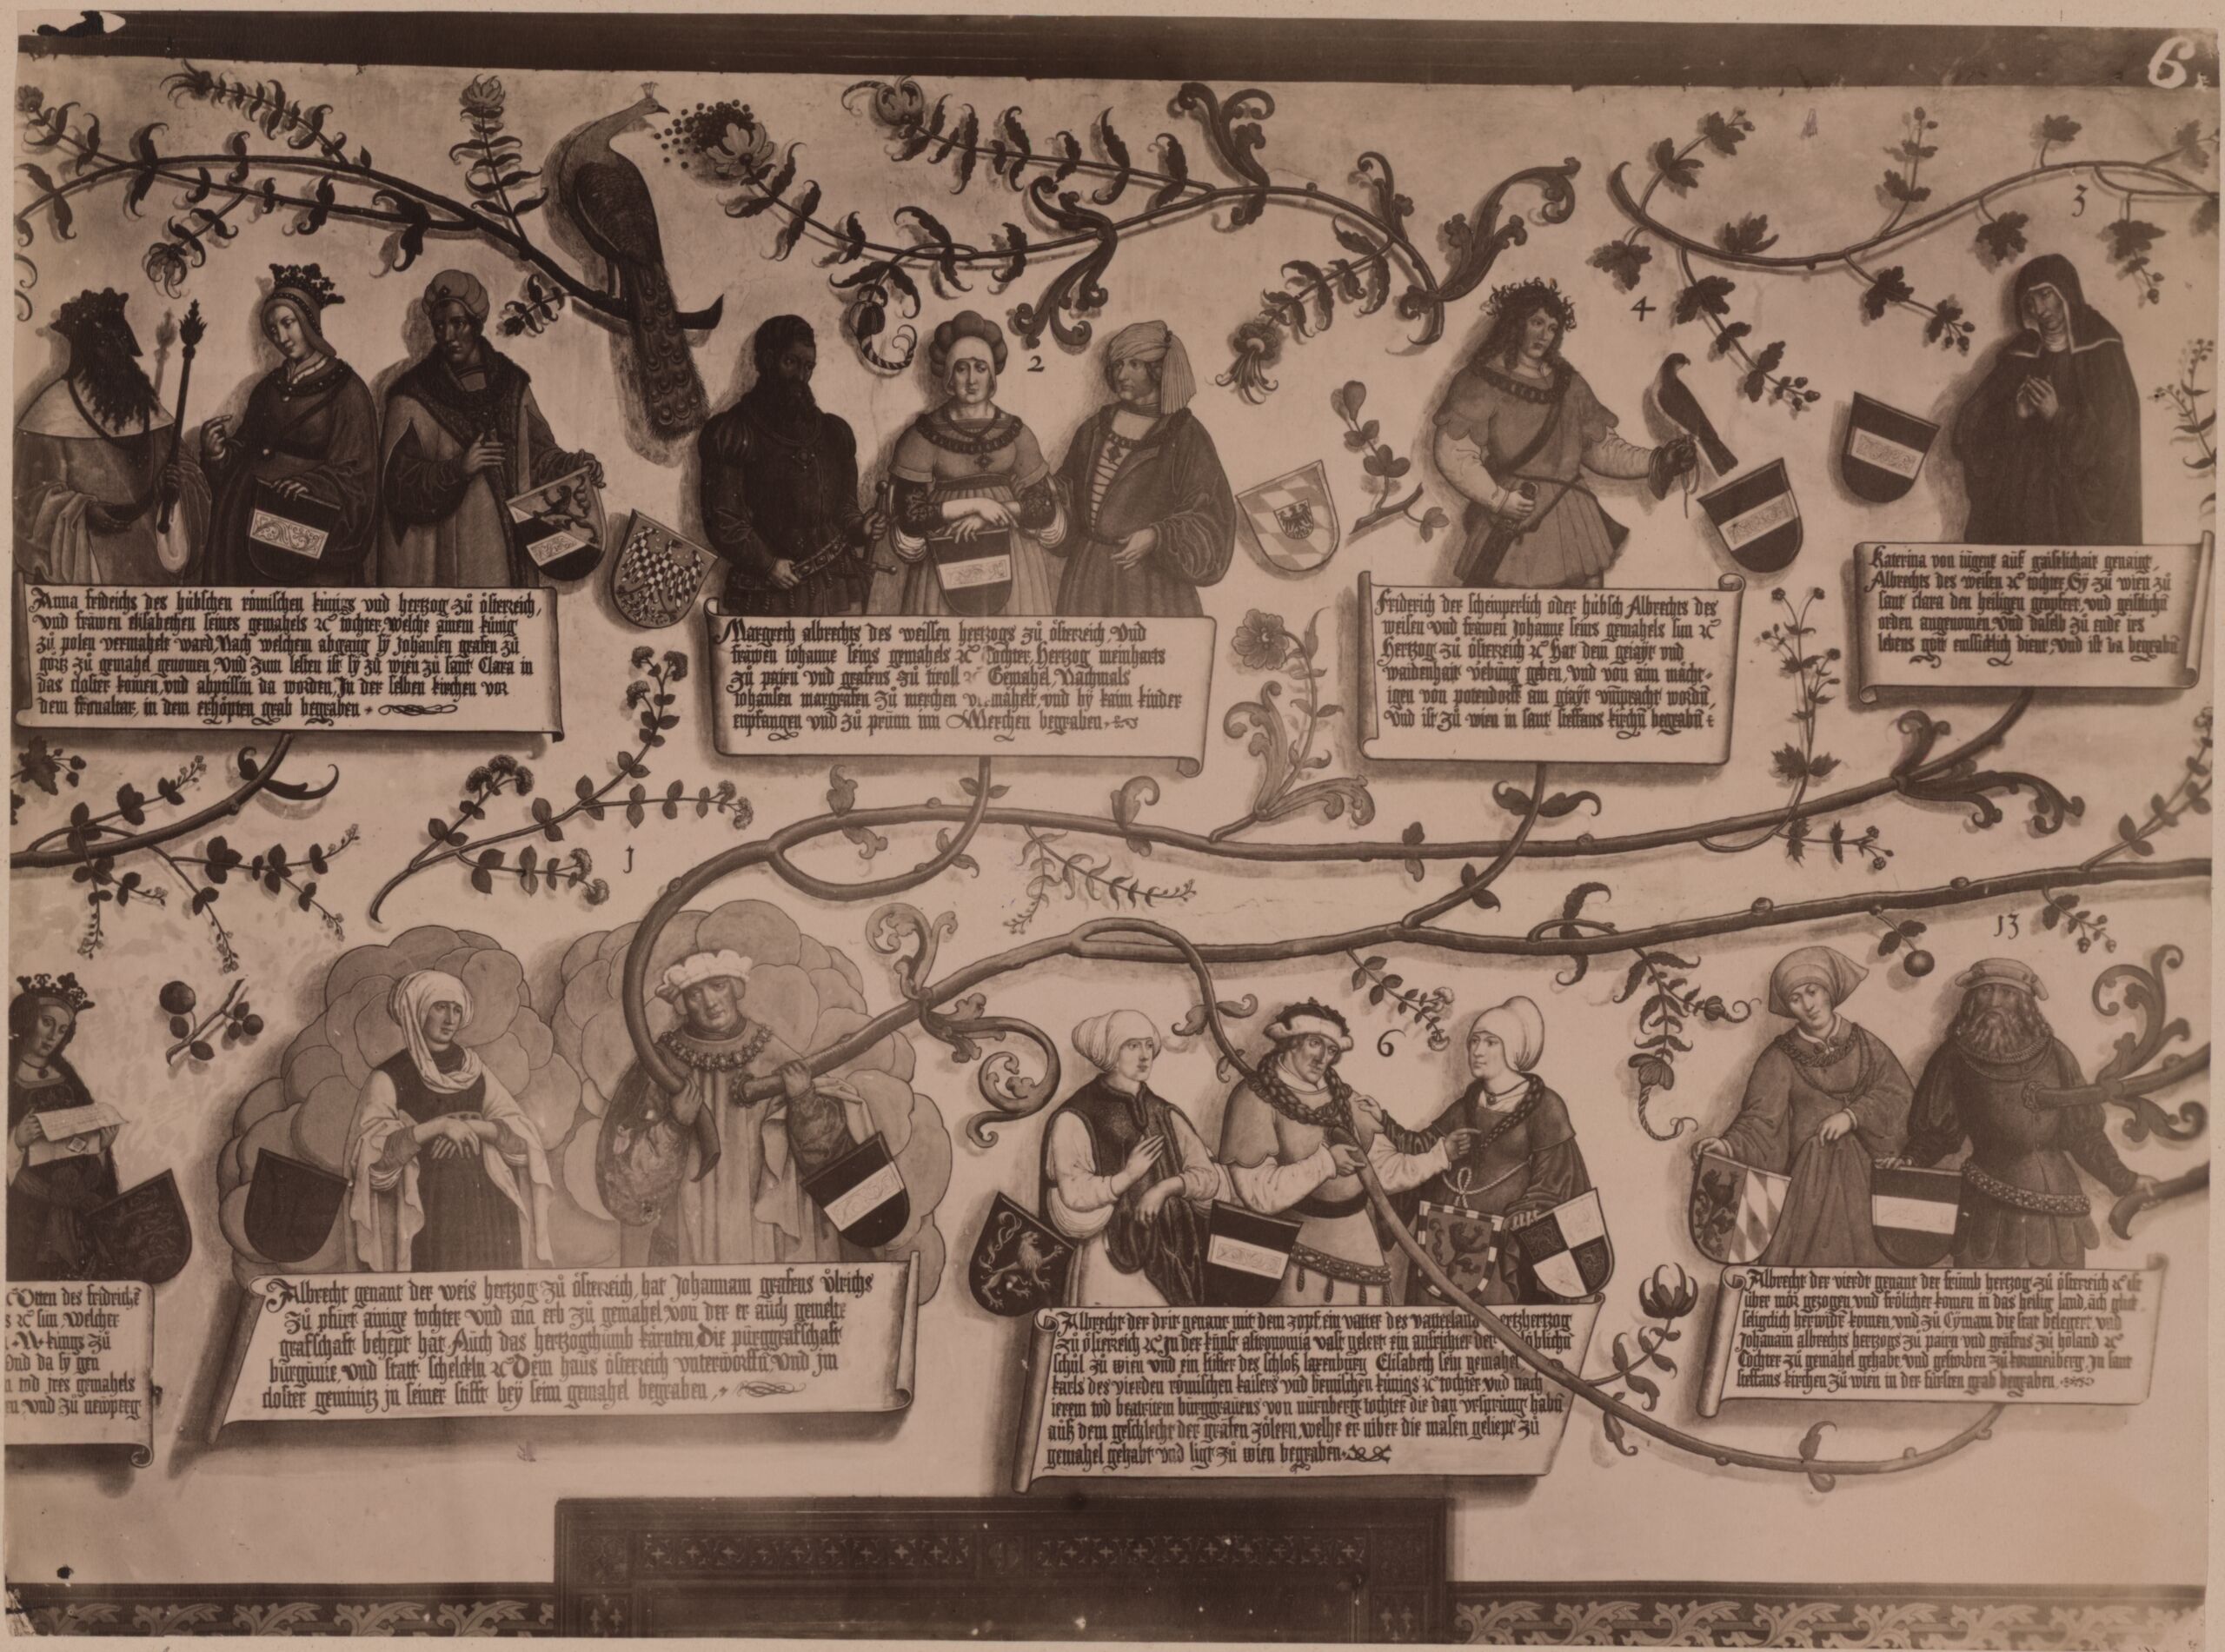 6.
3
4
2
Anna frideichs des hübschen römischen künigs vnd hertzog zů österreich,
vnd frawen elisabethen seines gemahels ⁊c tochter, welche ainem künig
zů polen vermahelt ward, Nach welchem abgang sy Johansen grafen zů
görtz zů gemahel genomen, Vnd zum lesten ist sy zů wien zů sant Clara in
das closter komen, vnd abptissin da worden, Jn der selben kirchen vor
dem fronaltar, in dem erhöpten grab begraben
Margreth albrechts des weissen hertzogs zů österreich, Vnd
frawen iohanne seins gemahels ⁊c Tochter, Hertzog meinharts
zů pairn vnd grafens zů tiroll ⁊c Gemahel, Nachmals
iohansen margrafen zů merchen vermähelt, vnd by kaim kinder
enpfangen vnd zů prünn inn Merchen begraben
Friderich der scheinperlich oder hübsch Albrechts des
weisen vnd frawen Johanne seins gemahels sun ⁊c
Hertzog zů österreich ⁊c Hat dem geiayr vnd
waidenhait vebung geben, vnd von am mächt-
igen von potendorff am giayt vmbracht wordn,
Vnd ist zů wien in sant steffans kirchn begrabn
Katerina von iugent auf gaistlichait genaigt,
Albrechts des weisen ⁊c tochter, Sy zů wien zů
sant clara den heiligen geopfert, vnd geistlichn
orden angenomen, Vnd daselb zů ende irs
lebens gott emssicklich dient, Vnd ist da begrabn
1
13
6
Otten des fridrichs
⁊c sun, welcher
künigs zů
Vnd da sy gen
tod jres gemahels
vnd zů newperg
Albrecht genant der weis hertzog zů österreich, hat Johannam grafens vlrichs
zů pfürt ainige tochter vnd ain erb zů gemahel, von der er auch gemelte
grafschaft behept hat, Auch das hertzogthumb kärnten, Die pürggrafschaft
burgunie, vnd statt scheckln ⁊c Dem haus österreich vnterworffn, vnd jm
closter geminitz jn seiner stifft bey seim gemahel begraben
Albrecht der drit genant mit dem zopf, ein vatter des vatterland ertzhertzog
zů österreich ⁊c Jn der künst astronomia vast gelert ein aufrichter der löblichn
schul zů wien vnd ein stifter des schloß laxenburg Elisabeth sein gemahel
karls des vierden römischen kaisers vnd bemischen künigs ⁊c tochter vnd nach
ierem tod beatricem bürggrauens von nürnberg tochter die dan vrsprung habn
auß dem geschlecht der grafen zolern, welhe er uiber die masen geliept zů
gemahel gehabt vnd ligt zů wien begraben
Albrecht der vierdt genant der frumb hertzog zů österreich ⁊c ist
über mör gezogen vnd frölicher komen in das heilig land, äch glück-
seligclich herwidr komen, vnd zů Cynam die stat belegert, vnd
Johanam albrechts hertzogs zů pairn vnd grafens zů holand ⁊c
Tochter zů gemahel gehabt, vnd gestorben zů kornneiberg, Jn sant
steffans kirchen zů wien in der fürsten grab begraben